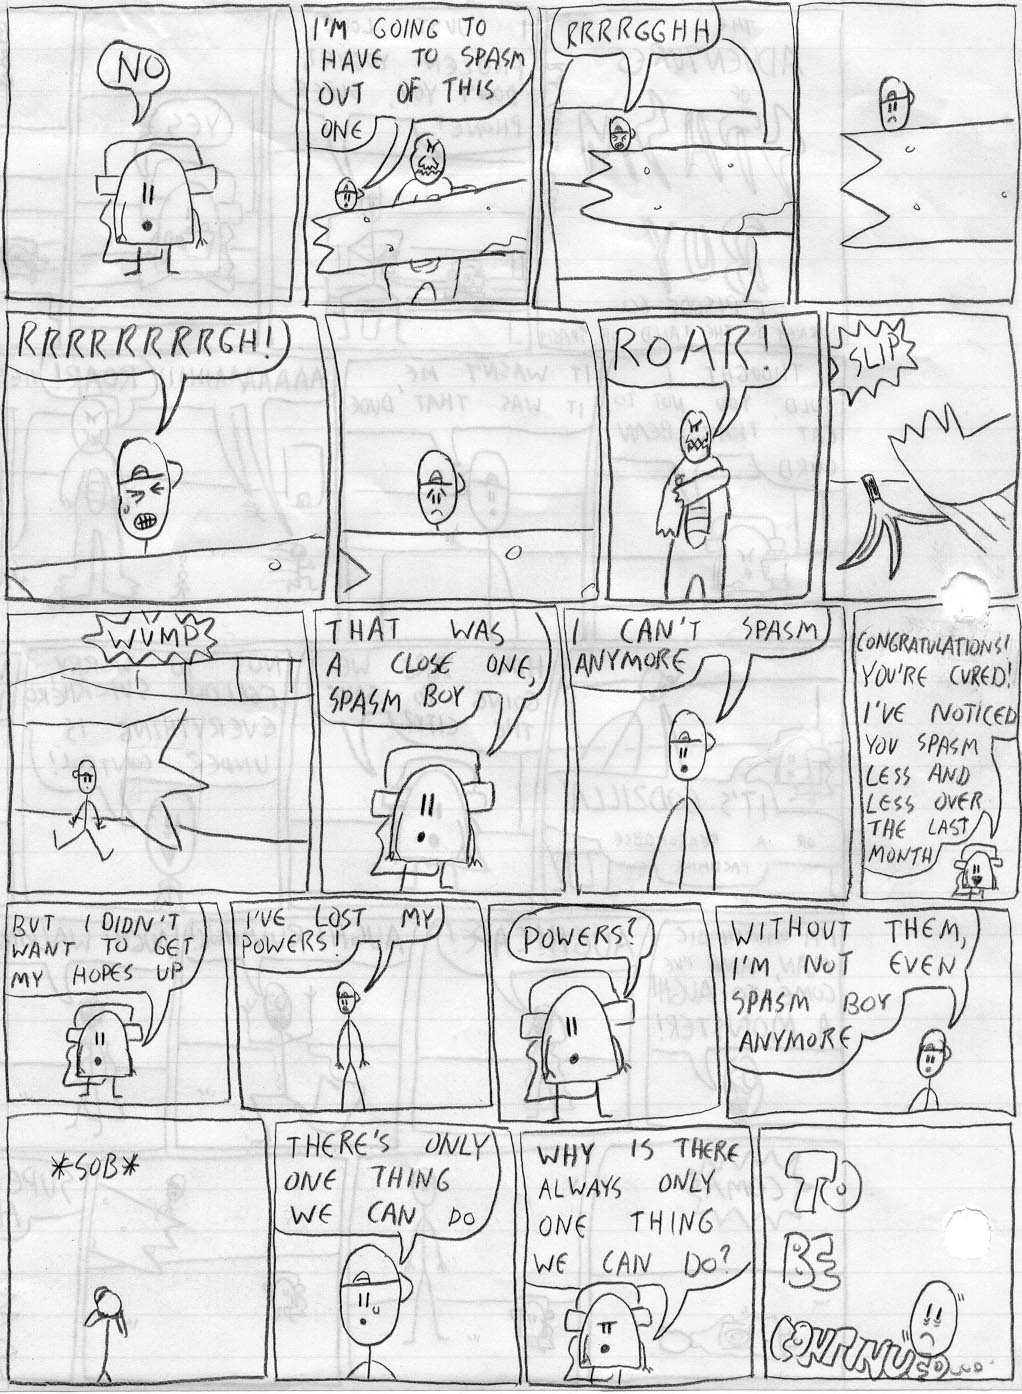 NO
I'M GOING TO
HAVE TO SPASM
OUT OF THIS
ONE
RRRRGGHH
RRRRRRRRGH!
ROAR!
SLIP
WUMP
THAT WAS
A CLOSE ONE,
SPASM BOY
I CAN'T SPASM
ANYMORE
CONGRATULATIONS!
YOU'RE CURED!
I'VE NOTICED
YOU SPASM
LESS AND
LESS OVER
THE LAST
MONTH
BUT I DIDN'T
WANT TO GET
MY HOPES UP
I'VE LOST MY
POWERS!
POWERS?
WITHOUT THEM,
I'M NOT EVEN
SPASM BOY
ANYMORE
*SOB*
THERE'S ONLY
ONE THING
WE CAN DO
WHY IS THERE
ALWAYS ONLY
ONE THING
WE CAN DO?
TO
BE
CONTINUED...